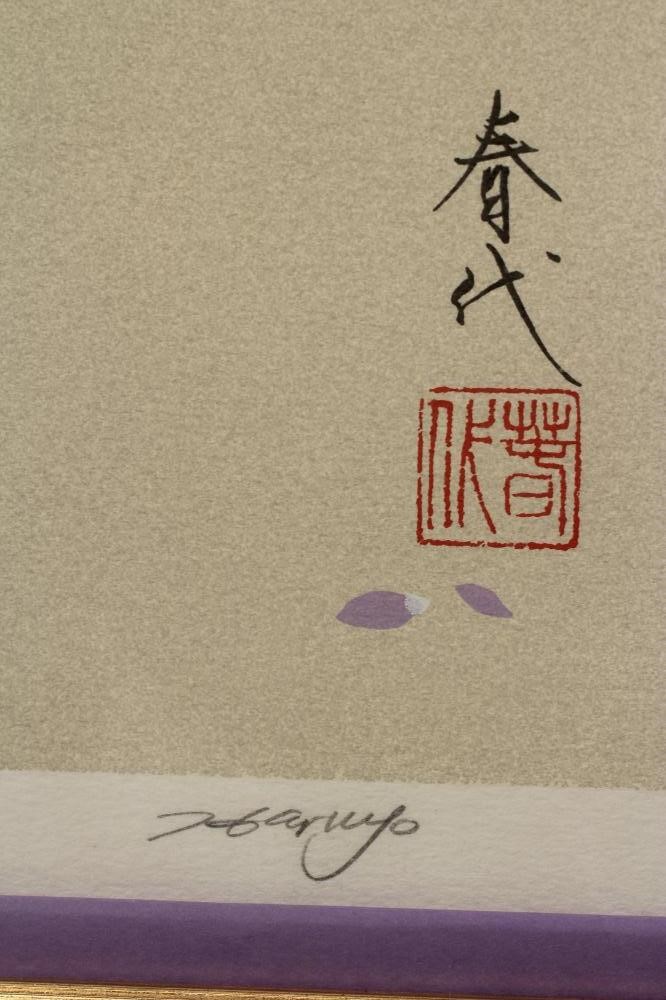 春代
春代
Haruyo